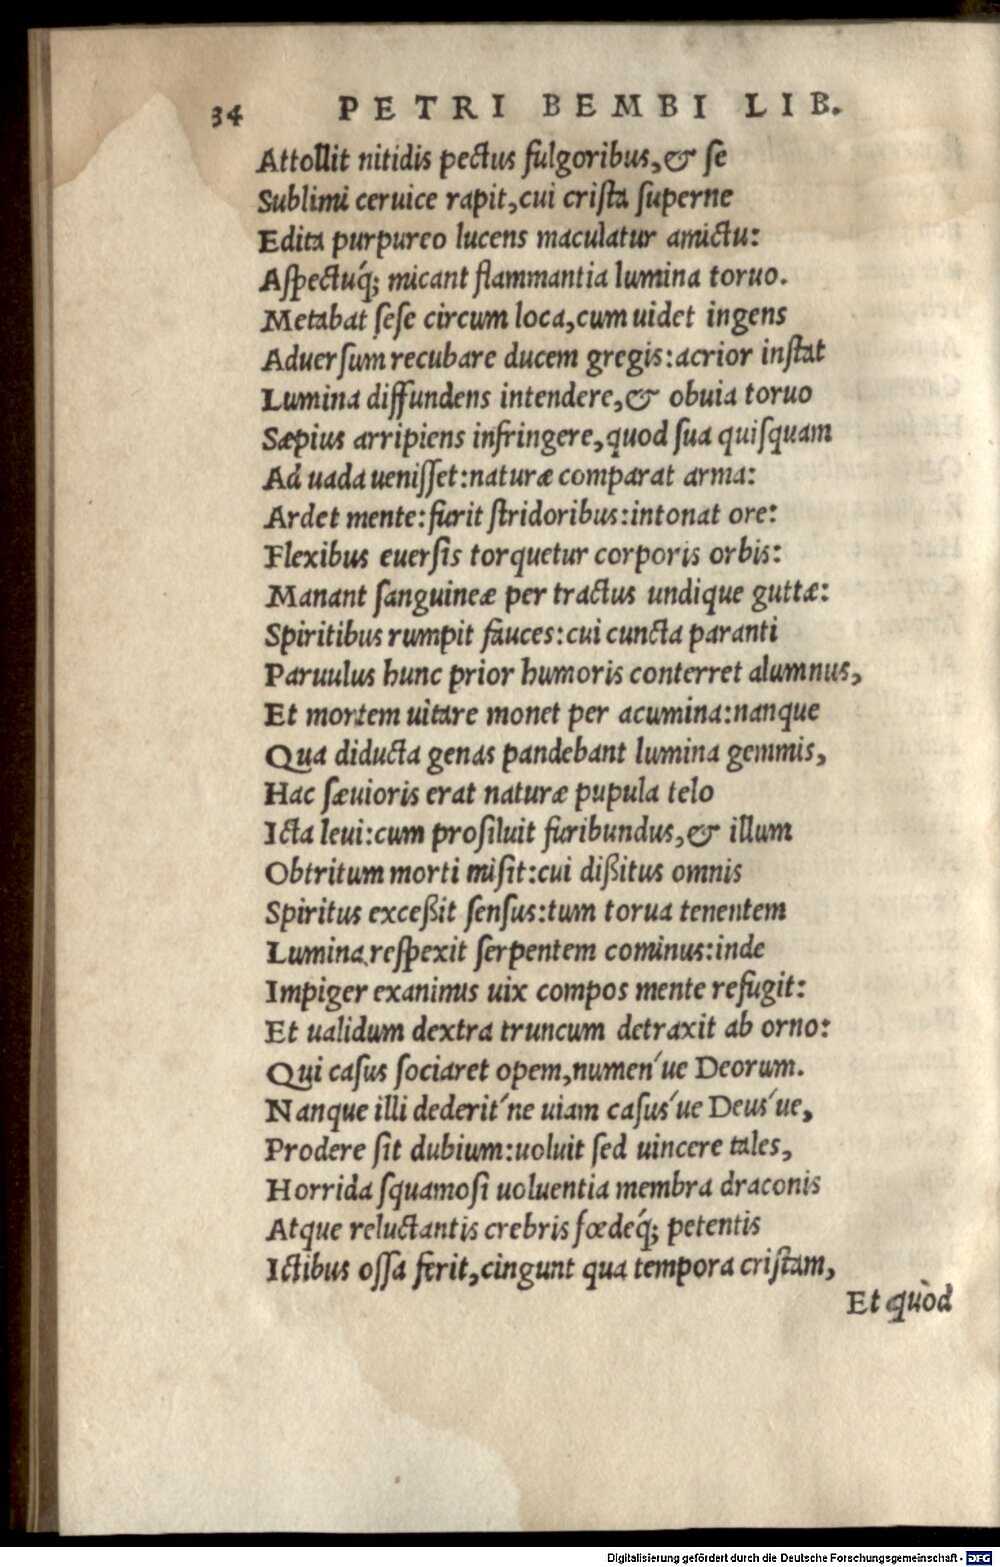 34 PETRI BEMBI LIB.
Attollit nitidis pectus fulgoribus,& se
Sublimi ceruice rapit,cui crista superne
Edita purpureo lucens maculatur amictu:
Aspectuq́; micant flammantia lumina toruo.
Metabat sese circum loca,cum uidet ingens
Aduersum recubare ducem gregis:acrior instat
Lumina diffundens intendere,& obuia toruo
Sæpius arripiens infringere,quod sua quisquam
Ad uada uenisset:naturæ comparat arma:
Ardet mente:furit stridoribus:intonat ore:
Flexibus euersis torquetur corporis orbis:
Manant sanguineæ per tractus undique guttæ:
Spiritibus rumpit fauces:cui cuncta paranti
Paruulus hunc prior humoris conterret alumnus,
Et mortem uitare monet per acumina:nanque
Qua diducta genas pandebant lumina gemmis,
Hac sæuioris erat naturæ pupula telo
Icta leui:cum prosiluit furibundus,& illum
Obtritum morti misit:cui dißitus omnis
Spiritus exceßit sensus:tum torua tenentem
Lumina respexit serpentem cominus:inde
Impiger exanimus uix compos mente refugit:
Et ualidum dextra truncum detraxit ab orno:
Qui casus sociaret opem,numen´ue Deorum.
Nanque illi dederit´ne uiam casus´ue Deus´ue,
Prodere sit dubium:uoluit sed uincere tales,
Horrida squamosi uoluentia membra draconis
Atque reluctantis crebris fœdeq́; petentis
Ictibus ossa ferit,cingunt qua tempora cristam,
Et quòd
Digitalisierung gefördert durch die Deutsche Forschungsgemeinschaft - DFG